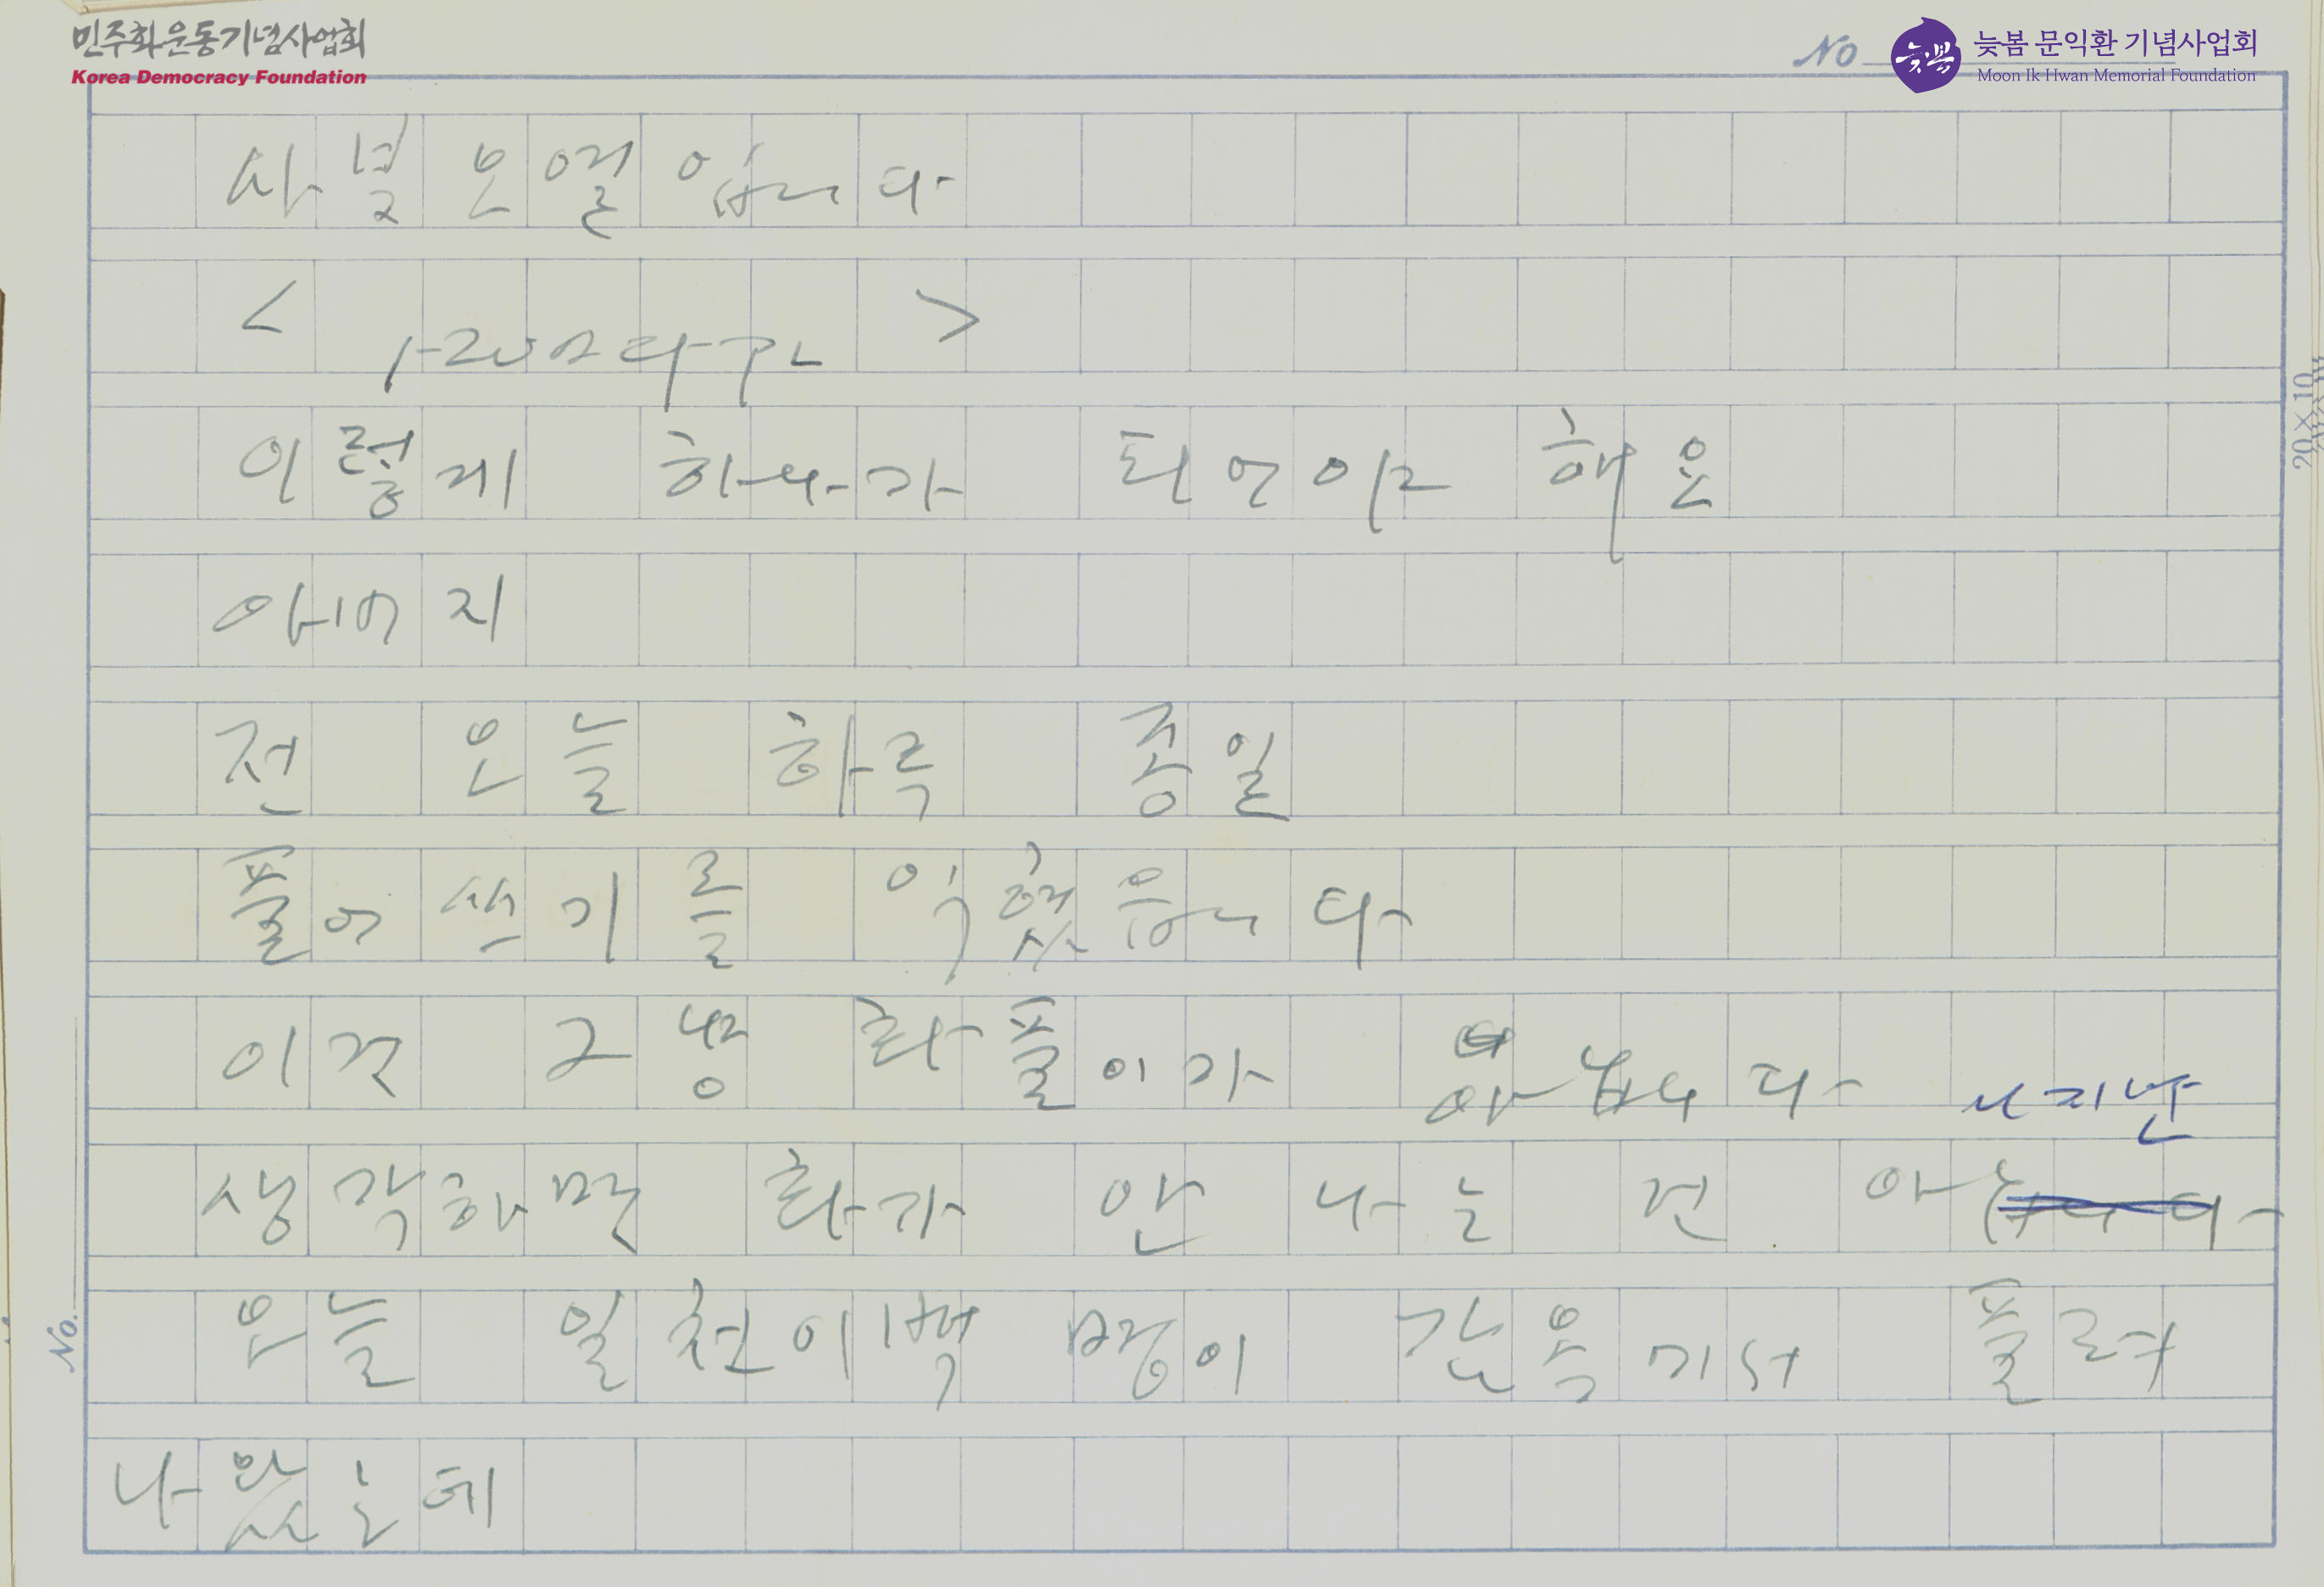 민주화운동기념사업회
Korea Democracy Foundation
No
늦봄
늦봄 문익환 기념사업회
Moon Ik Hwan Memorial Foundation
사녈오열입니다
< >
이렇게 하나가 되어야 해요
아버지
전 오늘 하루 종일
풀어쓰기를 익혔읍니다
이건 그냥 화풀이가 아닙니다
니지만
생각하면 화가 안 나는 건 아
오늘 일천이백 명이 감옥에서 풀려
나왔는데
20×10
No.